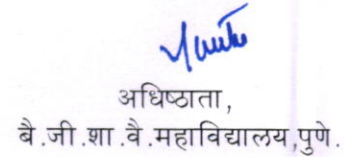 अधिष्ठाता,
बै.जी.शा.वै.महाविद्यालय,पुणे.